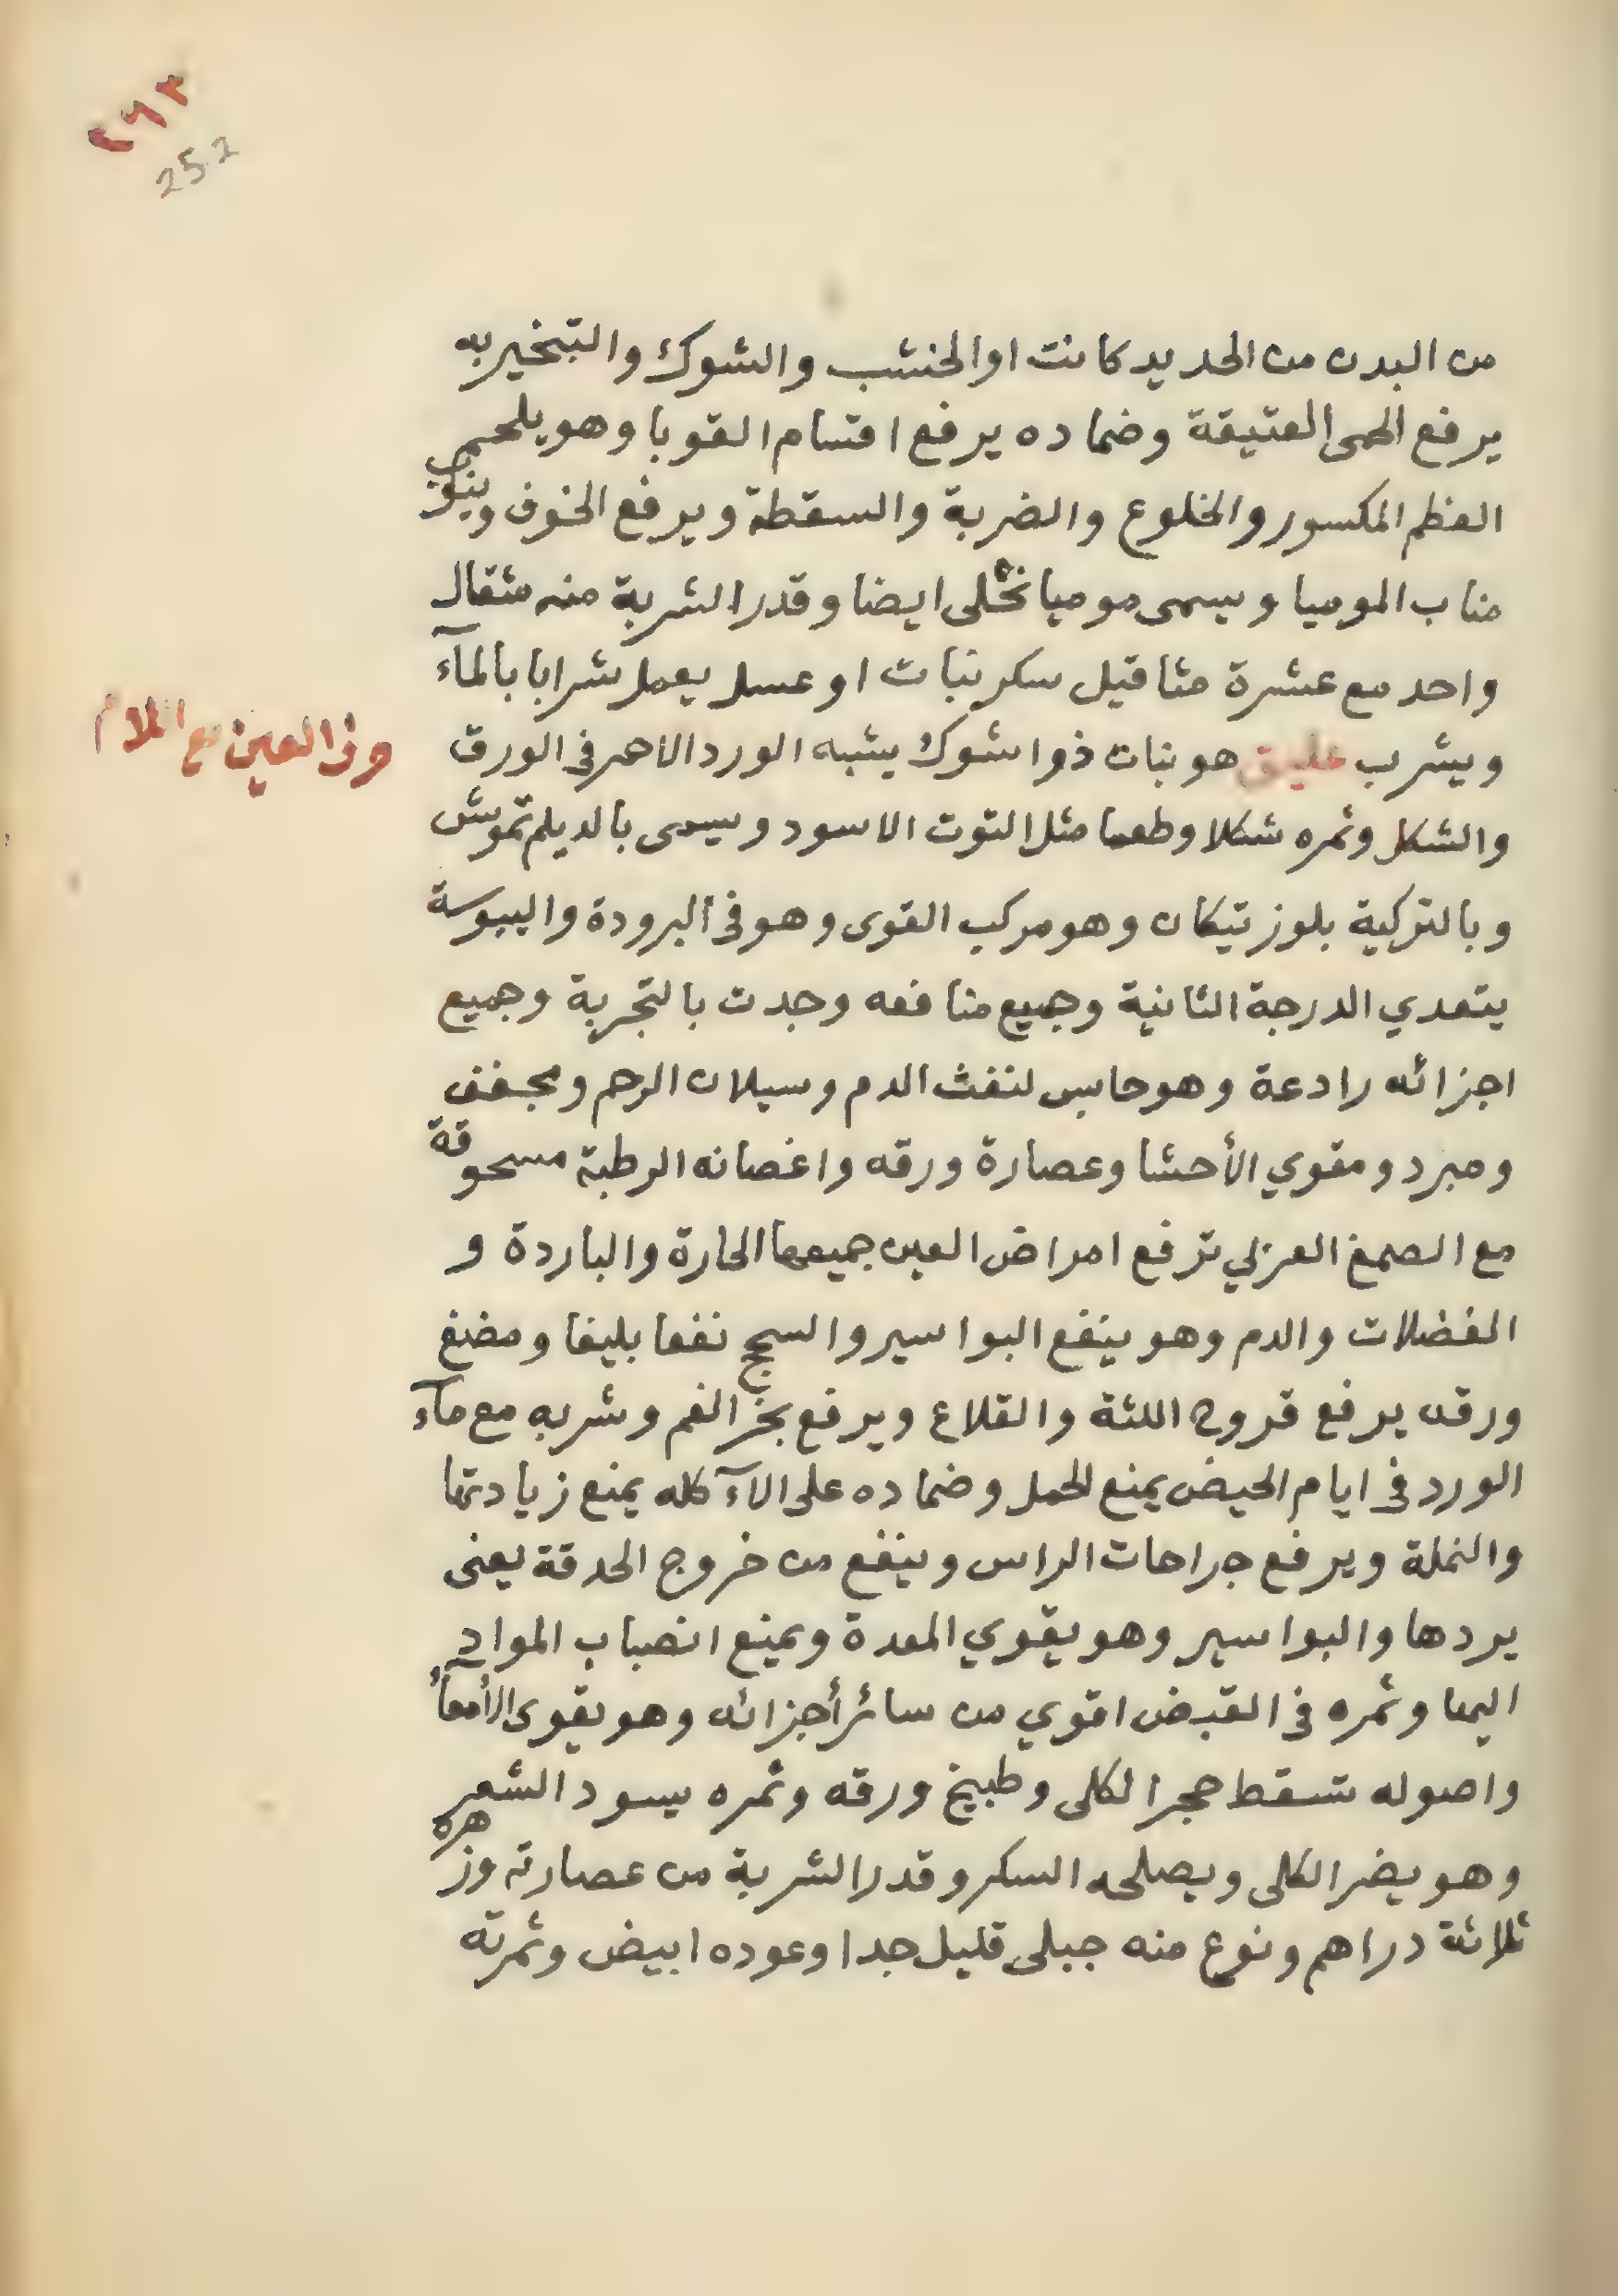 ٢٦٣
252
من البدن من الحديد كانت او الخشب والشوك والتبخير به
يرفع الحمى العتيقة وضماده يرفع اقسام القوبا وهو يلحم
العظم المكسور والخلوع والضربة والسقطة ويرفع الخوف وينوب
مناب الموميا ويسمى موميا نحلى ايضا وقدر الشربة منه مثقال
واحد مع عشرة مثاقيل سكر نبات او عسل يعمل شرابا بالمآء
ويشرب عليق هو نبات ذوا شوك يشبه الورد الاحمر فى الورق
وذا العين مع اللام
والشكل وثمره شكلا وطعما مثل التوت الاسود ويسمى بالديلم تموش
وبالتركية بلوز تيكان وهو مركب القوى وهو فى البرودة واليبوسة
يتعدي الدرجة الثانية وجميع منافعه وجدت بالتجربة وجميع
اجزائه رادعة وهو حابس لنفث الدم وسيلان الرحم ومجفف
ومبرد ومقوي الأحشا وعصارة ورقه واغصانه الرطبة مسحوقة
مع الصمغ العربي ترفع امراض العين جميعها الحارة والباردة و
الفضلات والدم وهو ينفع البواسير والسحج نفعا بليغا ومضغ
ورقه يرفع قروح اللثة والقلاع ويرفع بخر الفم وشربه مع مآء
الورد فى ايام الحيض يمنع الحمل وضماده على الآكله يمنع زيادتها
والنملة ويرفع جراحات الراس وينفع من خروج الحدقة يعنى
يردها والبواسير وهو يقوي المعدة ويمنع انصباب المواد
اليها وثمره فى القبض اقوي من سائر أجزائه وهو يقوى الأمعآء
واصوله تسقط حجر الكلى وطبيخ ورقه وثمره يسود الشعر
وهو يضر الكلى ويصلحه السكر وقدر الشربة من عصارته وزهره
ثلاثة دراهم ونوع منه جبلى قليل جدا وعوده ابيض وثمرته